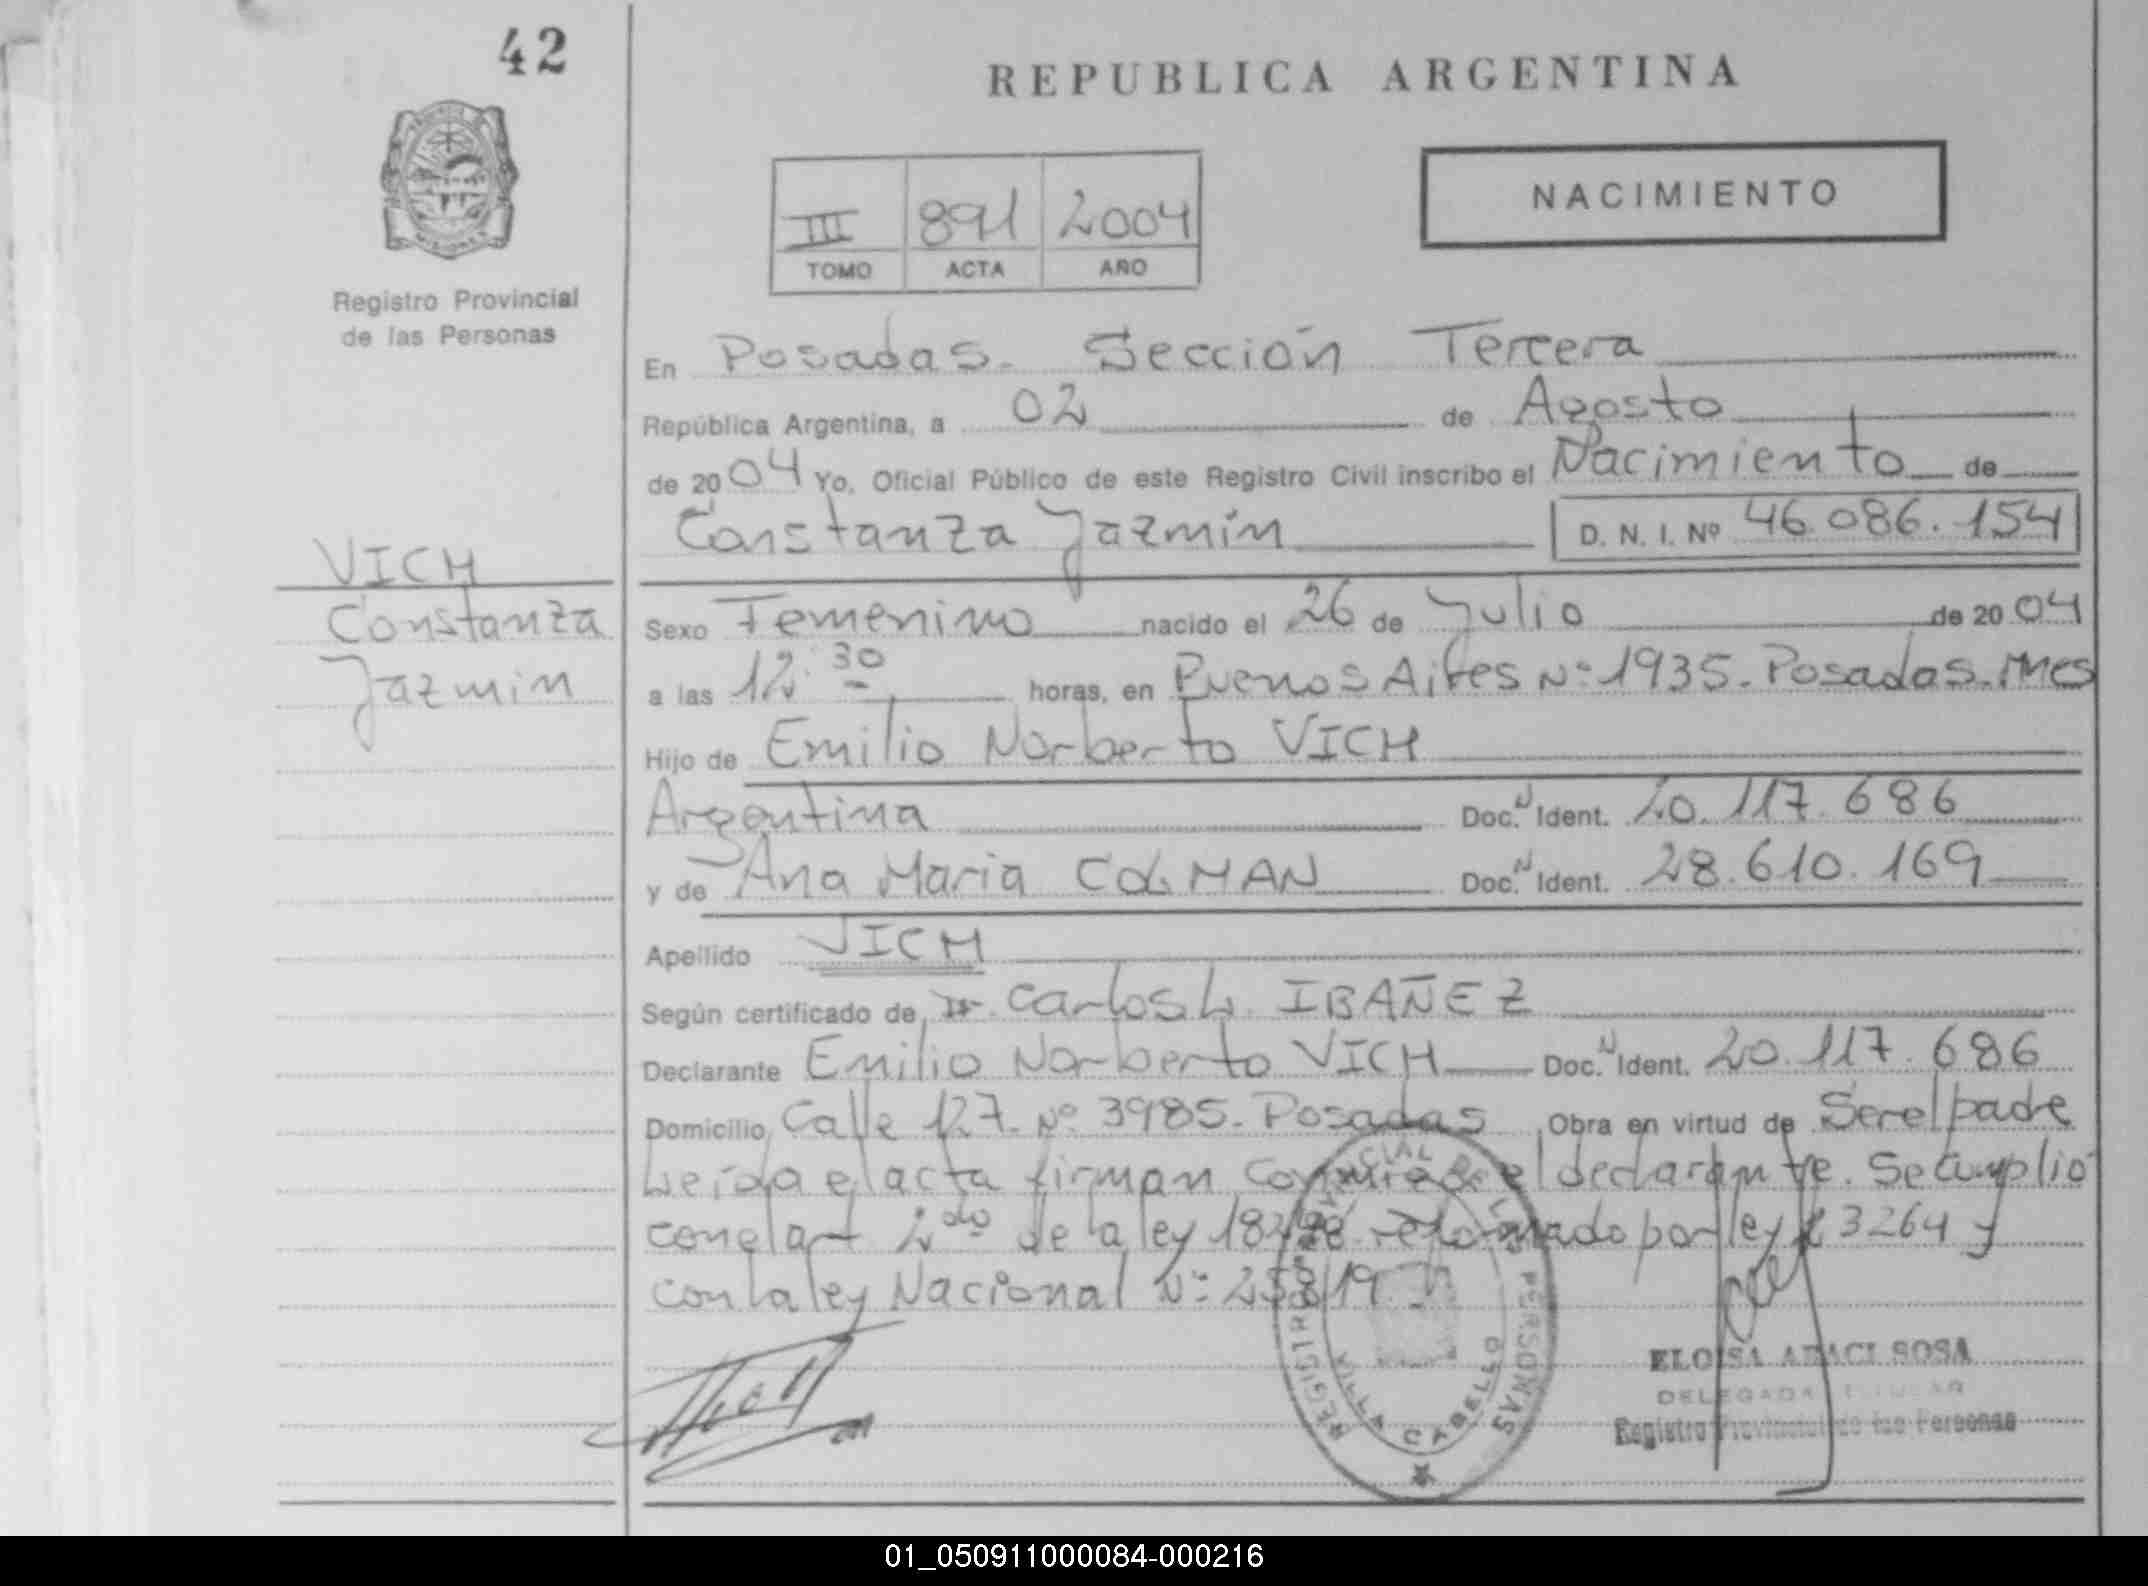 42
REPUBLICA ARGENTINA
III 891 2004
TOMO ACTA AÑO
NACIMIENTO
Registro Provincial
de las Personas
En Posadas. Sección Tercera
República Argentina, a 02 de Agosto
de 2004 Yo, Oficial Público de este Registro Civil inscribo el Nacimiento de
Constanza Jazmín D. N. I. Nº 46.086.154
VICH
Constanza
Jazmin
Sexo Femenino nacido el 26 de Julio de 2004
a las 12:30 horas, en Buenos Aires Nº 1935. Posadas. Mnes
Hijo de Emilio Norberto VICH
Argentina Doc. N Ident. 20.117.686
y de Ana Maria COLMAN Doc. N Ident. 28.610.169
Apellido VICH
Según certificado de Dr. Carlos L. IBAÑEZ
Declarante Emilio Norberto VICH Doc. N Ident. 20.117.686
Domicilio Calle 127. Nº 3985. Posadas Obra en virtud de Ser el padre
Leída el acta firman conmigo el declarante. Se cumplió
con el art 2do de la ley 18248 reformado por ley 23264 y
con la ley Nacional Nº 25819.
REGISTRO PROVINCIAL DE LAS PERSONAS
VILLA CABELLO
ELOISA ARACI SOSA
DELEGADA TITULAR
Registro Provincial de las Personas
01_050911000084-000216